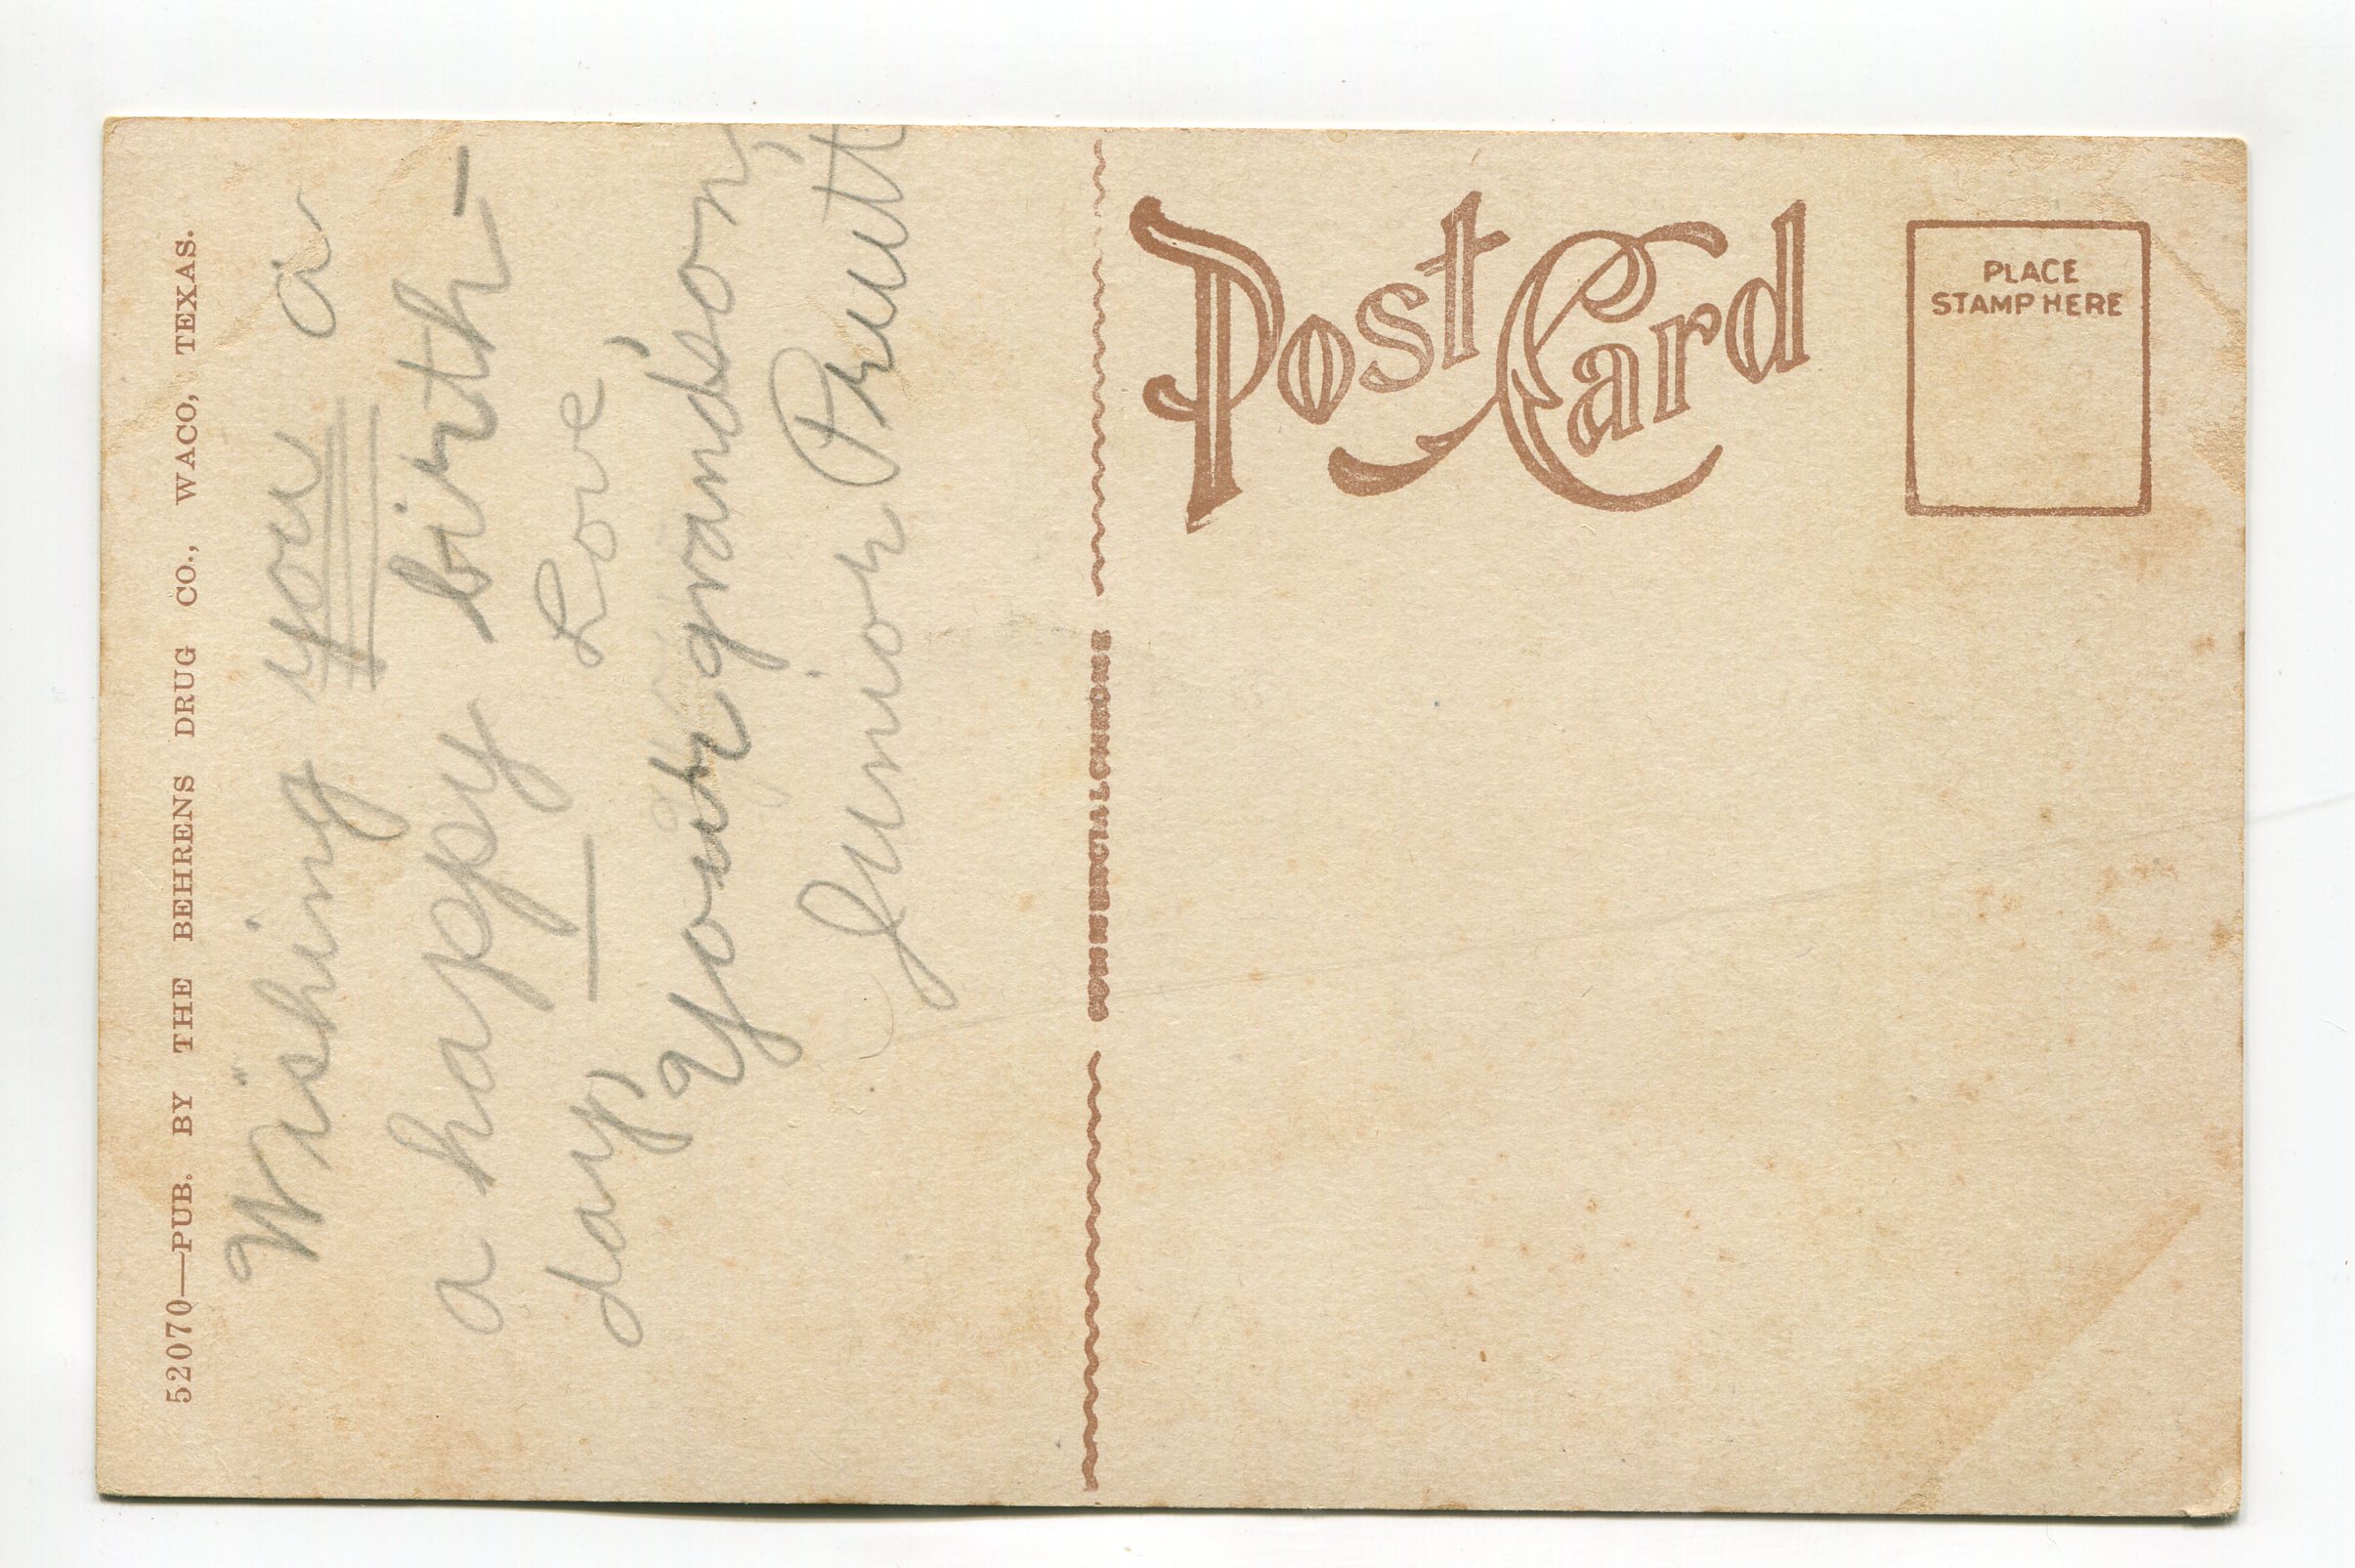 52070—PUB. BY THE BEHRENS DRUG CO., WACO, TEXAS.
Wishing you a
a happy birth-
day, — Love,
Your grandson,
Junior Pruett
Post Card
PLACE
STAMP HERE